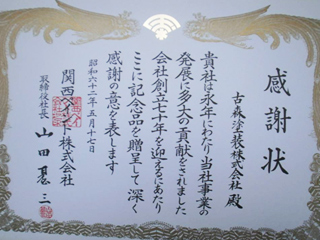 感謝状
古森塗装株式会社 殿
貴社は永年にわたり当社事業の
発展に多大の貢献をされました
会社創立七十年を迎えるにあたり
ここに記念品を贈呈して深く
感謝の意を表します
昭和六十三年五月十七日
関西ペイント株式会社
取締役社長 山田